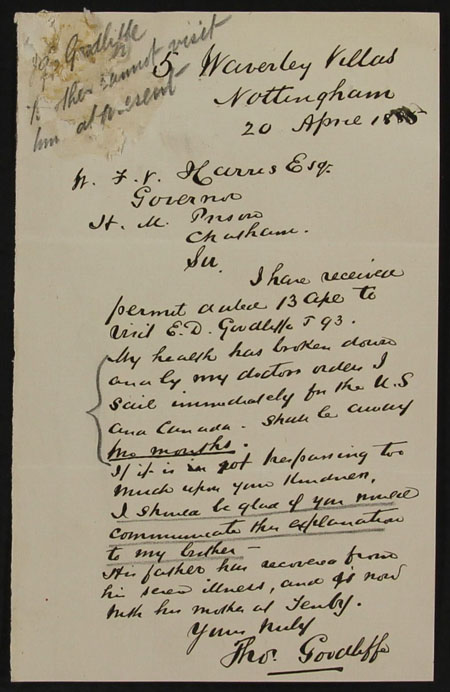 Goodliffe
brother cannot visit
him at present
5 Waverley Villas
Nottingham
20 April 188
W. F. V. Harris Esqr
Governor
H. M. Prison
Chatham.
Sir
I have received
permit dated 13 Ape to
visit E. D. Goodliffe T 93.
My health has broken down
and by my doctors orders I
sail immediately for the U.S
and Canada - shall be away
months.
If it is not trespassing too
much upon your kindness,
I should be glad if you would
communicate this explanation
to my brother -
His father has recovered from
his severe illness, and is now
with his mother at Tenby.
Yours truly
Thos. Goodliffe